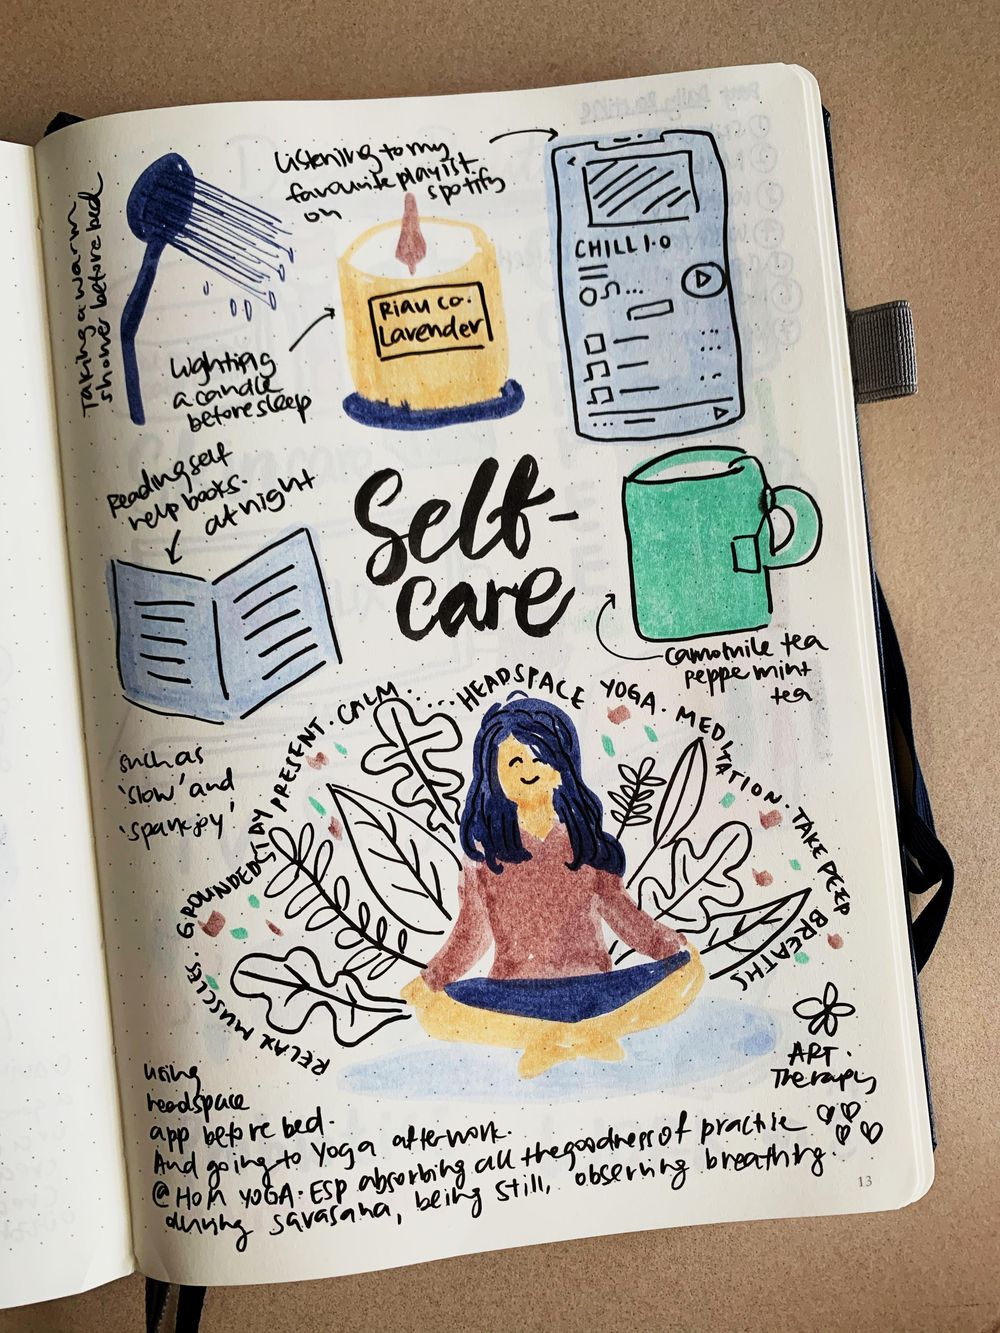 Taking a warm
shower before bed
Listening to my
favourite playlist
on spotify
Lighting
a candle
before sleep
Riau co.
Lavender
CHILL 1.0
Reading self
help books.
at night
such as
'slow' and
'spark joy'
Self-
care
camomile tea
peppermint
tea
RELAX MUSCLES. GROUNDED. STAY PRESENT. CALM... ...HEADSPACE YOGA. MEDITATION. TAKE DEEP BREATHS
ART.
Therapy
using
headspace
app before bed.
And going to Yoga after work.
@HOM YOGA.ESP absorbing all the goodness of practise
during savasana, being still, observing breathing.
13